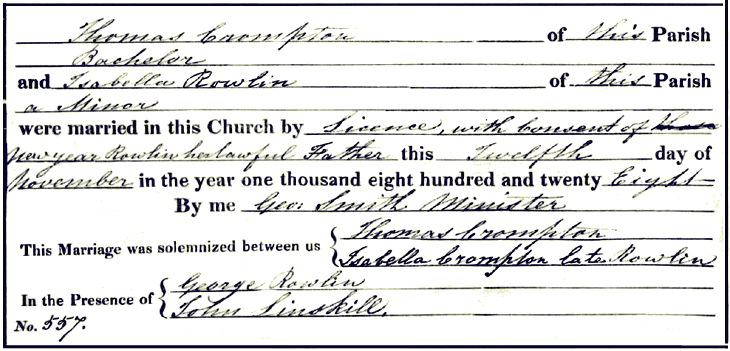 Thomas Crompton of this Parish
Bachelor
and Isabella Rowlin of this Parish
a Minor
were married in this Church by Licence, with Consent of
Newyear Rowlin her lawful Father this Twelfth day of
November in the year one thousand eight hundred and twenty Eight
By me Geo: Smith Minister
This Marriage was solemnized between us { Thomas Crompton
Isabella Crompton late Rowlin
In the Presence of { George Rowlin
John Linskill.
No. 557.